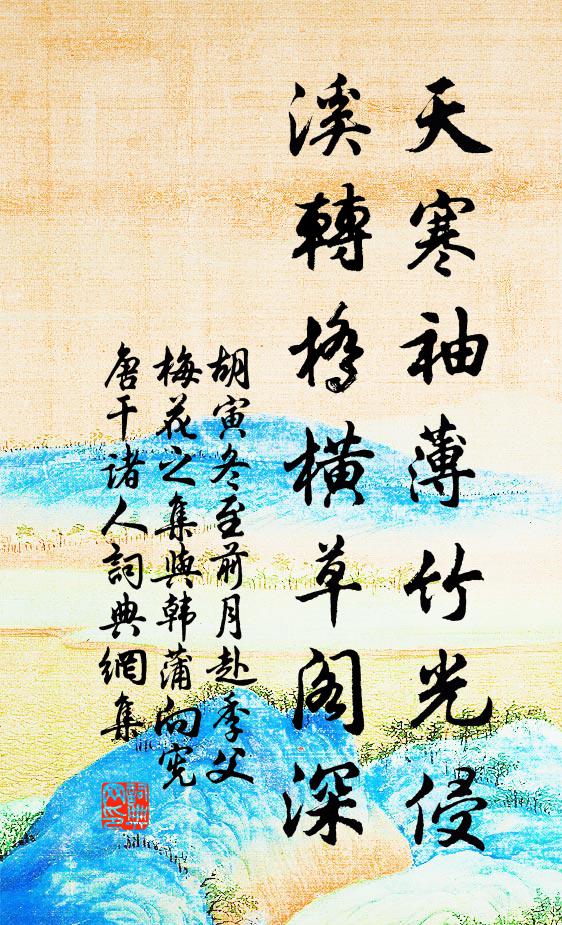 天寒袖薄竹光侵
溪轉橋橫草閣深
胡寅冬至前月赴季父
梅花之集與韩蒲向宪
唐干诸人詞典網集